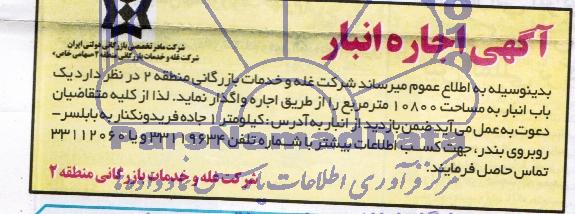 آگهی اجاره انبار
شرکت مادر تخصصی بازرگانی دولتی ایران
شرکت غله و خدمات بازرگانی منطقه ۲ «سهامی خاص»
بدینوسیله به اطلاع عموم میرساند شرکت غله و خدمات بازرگانی منطقه ۲ در نظر دارد یک
باب انبار به مساحت ۱۰۸۰۰ مترمربع را از طریق اجاره واگذار نماید. لذا از کلیه متقاضیان
دعوت به عمل می آید ضمن بازدید از انبار به آدرس: کیلومتر ۱ جاده فریدونکنار به بابلسر-
روبروی بندر، جهت کسب اطلاعات بیشتر با شماره تلفن ۳۳۱۱۹۶۳۴ و یا ۳۳۱۱۲۰۶۰
تماس حاصل فرمایند.
شرکت غله و خدمات بازرگانی منطقه ۲
مرکز فرآوری اطلاعات